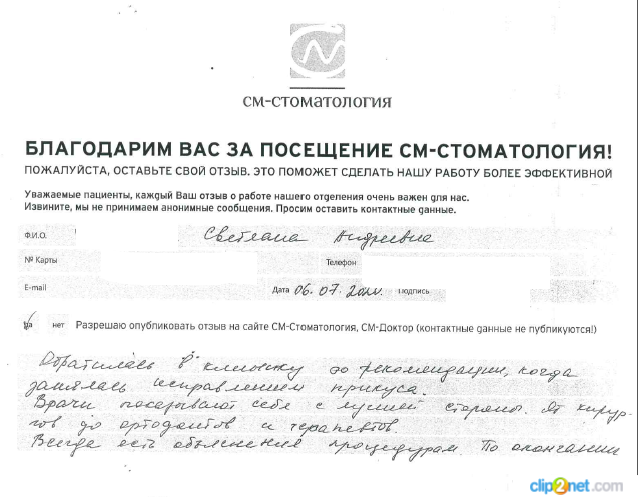 СМ-СТОМАТОЛОГИЯ
БЛАГОДАРИМ ВАС ЗА ПОСЕЩЕНИЕ СМ-СТОМАТОЛОГИЯ!
ПОЖАЛУЙСТА, ОСТАВЬТЕ СВОЙ ОТЗЫВ. ЭТО ПОМОЖЕТ СДЕЛАТЬ НАШУ РАБОТУ БОЛЕЕ ЭФФЕКТИВНОЙ
Уважаемые пациенты, каждый Ваш отзыв о работе нашего отделения очень важен для нас.
Извините, мы не принимаем анонимные сообщения. Просим оставить контактные данные.
Ф.И.О. Светлана Андреевна
№ Карты Телефон
E-mail Дата 06.07. Подпись
да нет Разрешаю опубликовать отзыв на сайте СМ-Стоматология, СМ-Доктор (контактные данные не публикуются!)
Обратилась в клинику по рекомендации, когда
занялась исправлением прикуса.
Врачи показывают себя с лучшей стороны. От хирур-
гов до ортодонтов и терапевтов.
Всегда есть объяснения процедурам. По окончании
clip2net.com